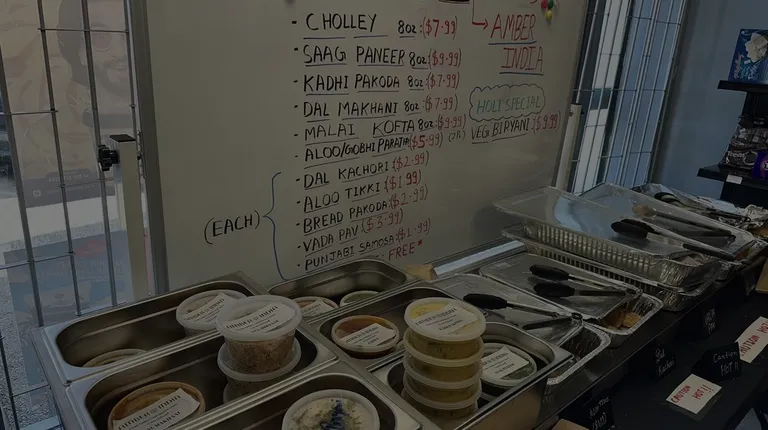 - CHOLLEY 8oz:($7.99)
- SAAG PANEER 8oz:($9.99)
- KADHI PAKODA 8oz:($7.99)
- DAL MAKHANI 8oz:($7.99)
- MALAI KOFTA 8oz:($9.99)
- ALOO/GOBHI PARATHA($5.99)
- DAL KACHORI:($2.99)
- ALOO TIKKI:($1.99)
- BREAD PAKODA:($2.99)
- VADA PAV:($3.99)
- PUNJABI SAMOSA:($1.99)
FREE*
(EACH)
AMBER
INDIA
HOLI SPECIAL
VEG BIRYANI:($9.99)